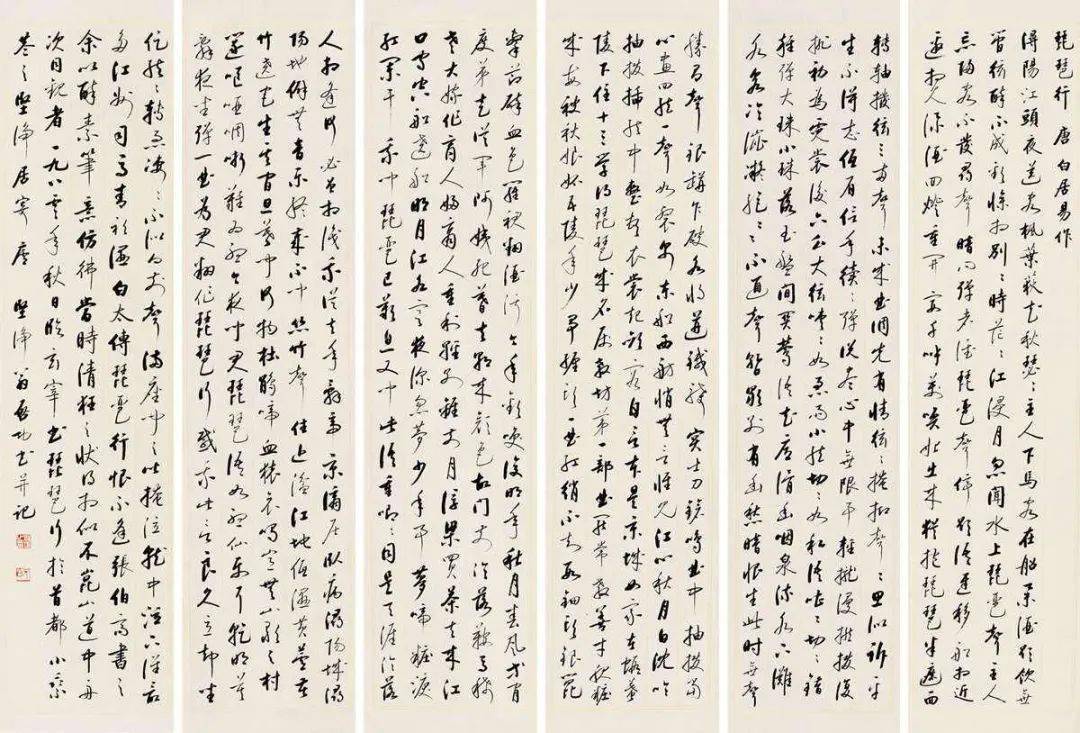 琵琶行 唐白居易作
潯陽江頭夜送客楓葉荻花秋瑟〻主人下馬客在船舉酒欲飲無
管絃醉不成歡慘將別〻時茫〻江浸月忽聞水上琵琶聲主人
忘歸客不發尋聲暗問彈者誰琵琶聲停欲語遲移船相近
邀相見添酒回燈重開宴千呼萬喚始出來猶抱琵琶半遮面
轉軸撥絃三兩聲未成曲調先有情絃〻掩抑聲〻思似訴平
生不得志低眉信手續〻彈說盡心中無限事輕攏慢撚撥復
挑初為霓裳後六幺大絃嘈〻如急雨小絃切〻如私語嘈〻切〻錯
雜彈大珠小珠落玉盤間關鶯語花底滑幽咽泉流水下灘
水泉冷澀凝絕〻不通聲暫歇別有幽愁暗恨生此時無聲
勝有聲銀瓶乍破水漿迸鐵騎突出刀鎗鳴曲終抽撥當
心畫四絃一聲如裂帛東船西舫悄無言惟見江心秋月白沈吟
抽撥插絃中整頓衣裳起斂容自言本是京城女家在蝦蟇
陵下住十三學得琵琶成名屬教坊第一部曲罷常教善才伏妝
成每被秋娘妒五陵年少爭纏頭一曲紅綃不知數鈿頭銀篦
擊節碎血色羅裙翻酒污今年歡笑復明年秋月春風等閑
度弟走從軍阿姨死暮去朝來顏色故門前冷落鞍馬稀
老大嫁作商人婦商人重利輕別離前月浮梁買茶去來江
口守空船遶船明月江水寒夜深忽夢少年事夢啼妝淚
紅闌干我聞琵琶已歎息又聞此語重唧〻同是天涯淪落
人相逢何必曾相識我從去年辭帝京謫居臥病潯陽城潯
陽地僻無音樂終歲不聞絲竹聲住近湓江地低濕黃蘆苦
竹遶宅生其間旦暮聞何物杜鵑啼血猿哀鳴豈無山歌與村
笛嘔啞嘲哳難為聽今夜聞君琵琶語如聽仙樂耳暫明莫
辭更坐彈一曲為君翻作琵琶行感我此言良久立却坐
促絃〻轉急淒〻不似向前聲滿座聞之皆掩泣就中泣下誰最
多江州司馬青衫濕白太傅琵琶行恨不逢張伯高書之
余以醉素筆意仿彿當時清狂之狀得相似不崑山道中舟
次同觀者一九八〇年秋日臨玄宰書琵琶行於首都小乘
巷之堅淨居寓廬 堅淨翁啟功書并記